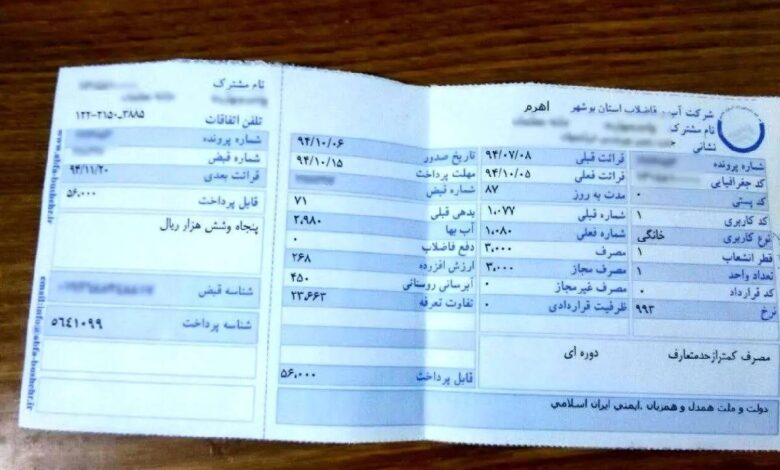 شرکت آب و فاضلاب استان بوشهر اهرم
نام مشترک
نشانی
شماره پرونده
کد جغرافیایی
کد پستی ۰
کد کاربری ۱
نوع کاربری خانگی
قطر انشعاب ۱
تعداد واحد ۱
کد قرارداد ۰
نرخ ۹۹۳
قرائت قبلی ۹۴/۰۷/۰۸
قرائت فعلی ۹۴/۱۰/۰۵
مدت به روز ۸۷
شماره قبلی ۱,۰۷۷
شماره فعلی ۱,۰۸۰
مصرف ۳,۰۰۰
مصرف مجاز ۳,۰۰۰
مصرف غیرمجاز ۰
ظرفیت قراردادی ۰
مصرف کمترازحدمتعارف دوره ای
دولت و ملت همدل و همزبان .ایمنی ایران اسلامی
تاریخ صدور ۹۴/۱۰/۰۶
مهلت پرداخت ۹۴/۱۰/۱۵
شماره قبض
بدهی قبلی ۷۱
آب بها ۲,۹۸۰
دفع فاضلاب ۰
ارزش افزرده ۲۶۸
آبرسانی روستائی ۴۵۰
تفاوت تعرفه ۲۳,۶۶۳
قابل پرداخت ۵۶,۰۰۰
نام مشترک
تلفن اتفاقات ۳۸۸۵_۲۱۵۰-۱۲۲
شماره پرونده
شماره قبض
قرائت بعدی ۹۴/۱۱/۲۰
قابل پرداخت ۵۶,۰۰۰
پنجاه وشش هزار ریال
شناسه قبض
شناسه پرداخت ۵۶۴۱۰۹۹
www.abfa-bushehr.ir
email:info@abfa-bushehr.ir